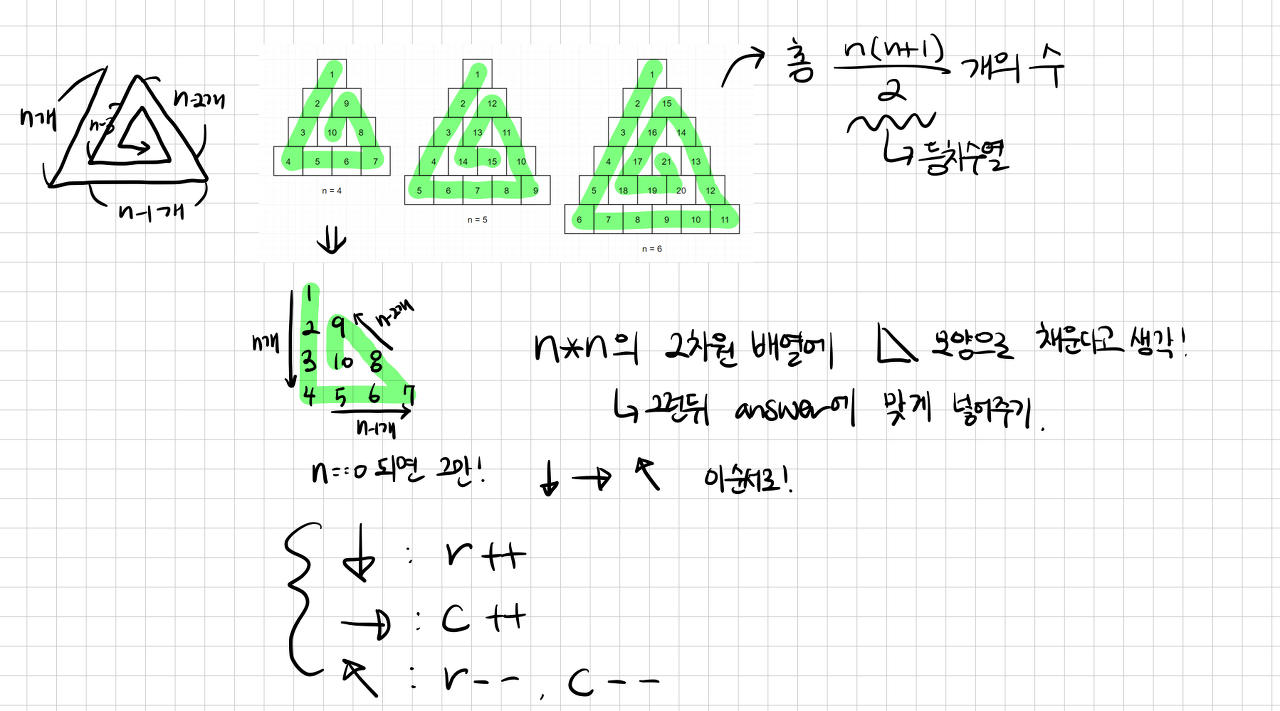 n개
n-3
n-2개
n-1개
1
2 9
3 10 8
4 5 6 7
n = 4
1
2 12
3 13 11
4 14 15 10
5 6 7 8 9
n = 5
1
2 15
3 16 14
4 17 21 13
5 18 19 20 12
6 7 8 9 10 11
n = 6
총 n(n+1)/2 개의 수
등차수열
n개
1
2 9
3 10 8
4 5 6 7
n-2개
n-1개
n*n의 2차원 배열에 모양으로 채운다고 생각!
↳ 그런뒤 answer에 맞게 넣어주기.
n==0 되면 그만!
↓ → ↖ 이순서로!
↓ : r++
→ : c++
↖ : r--, c--